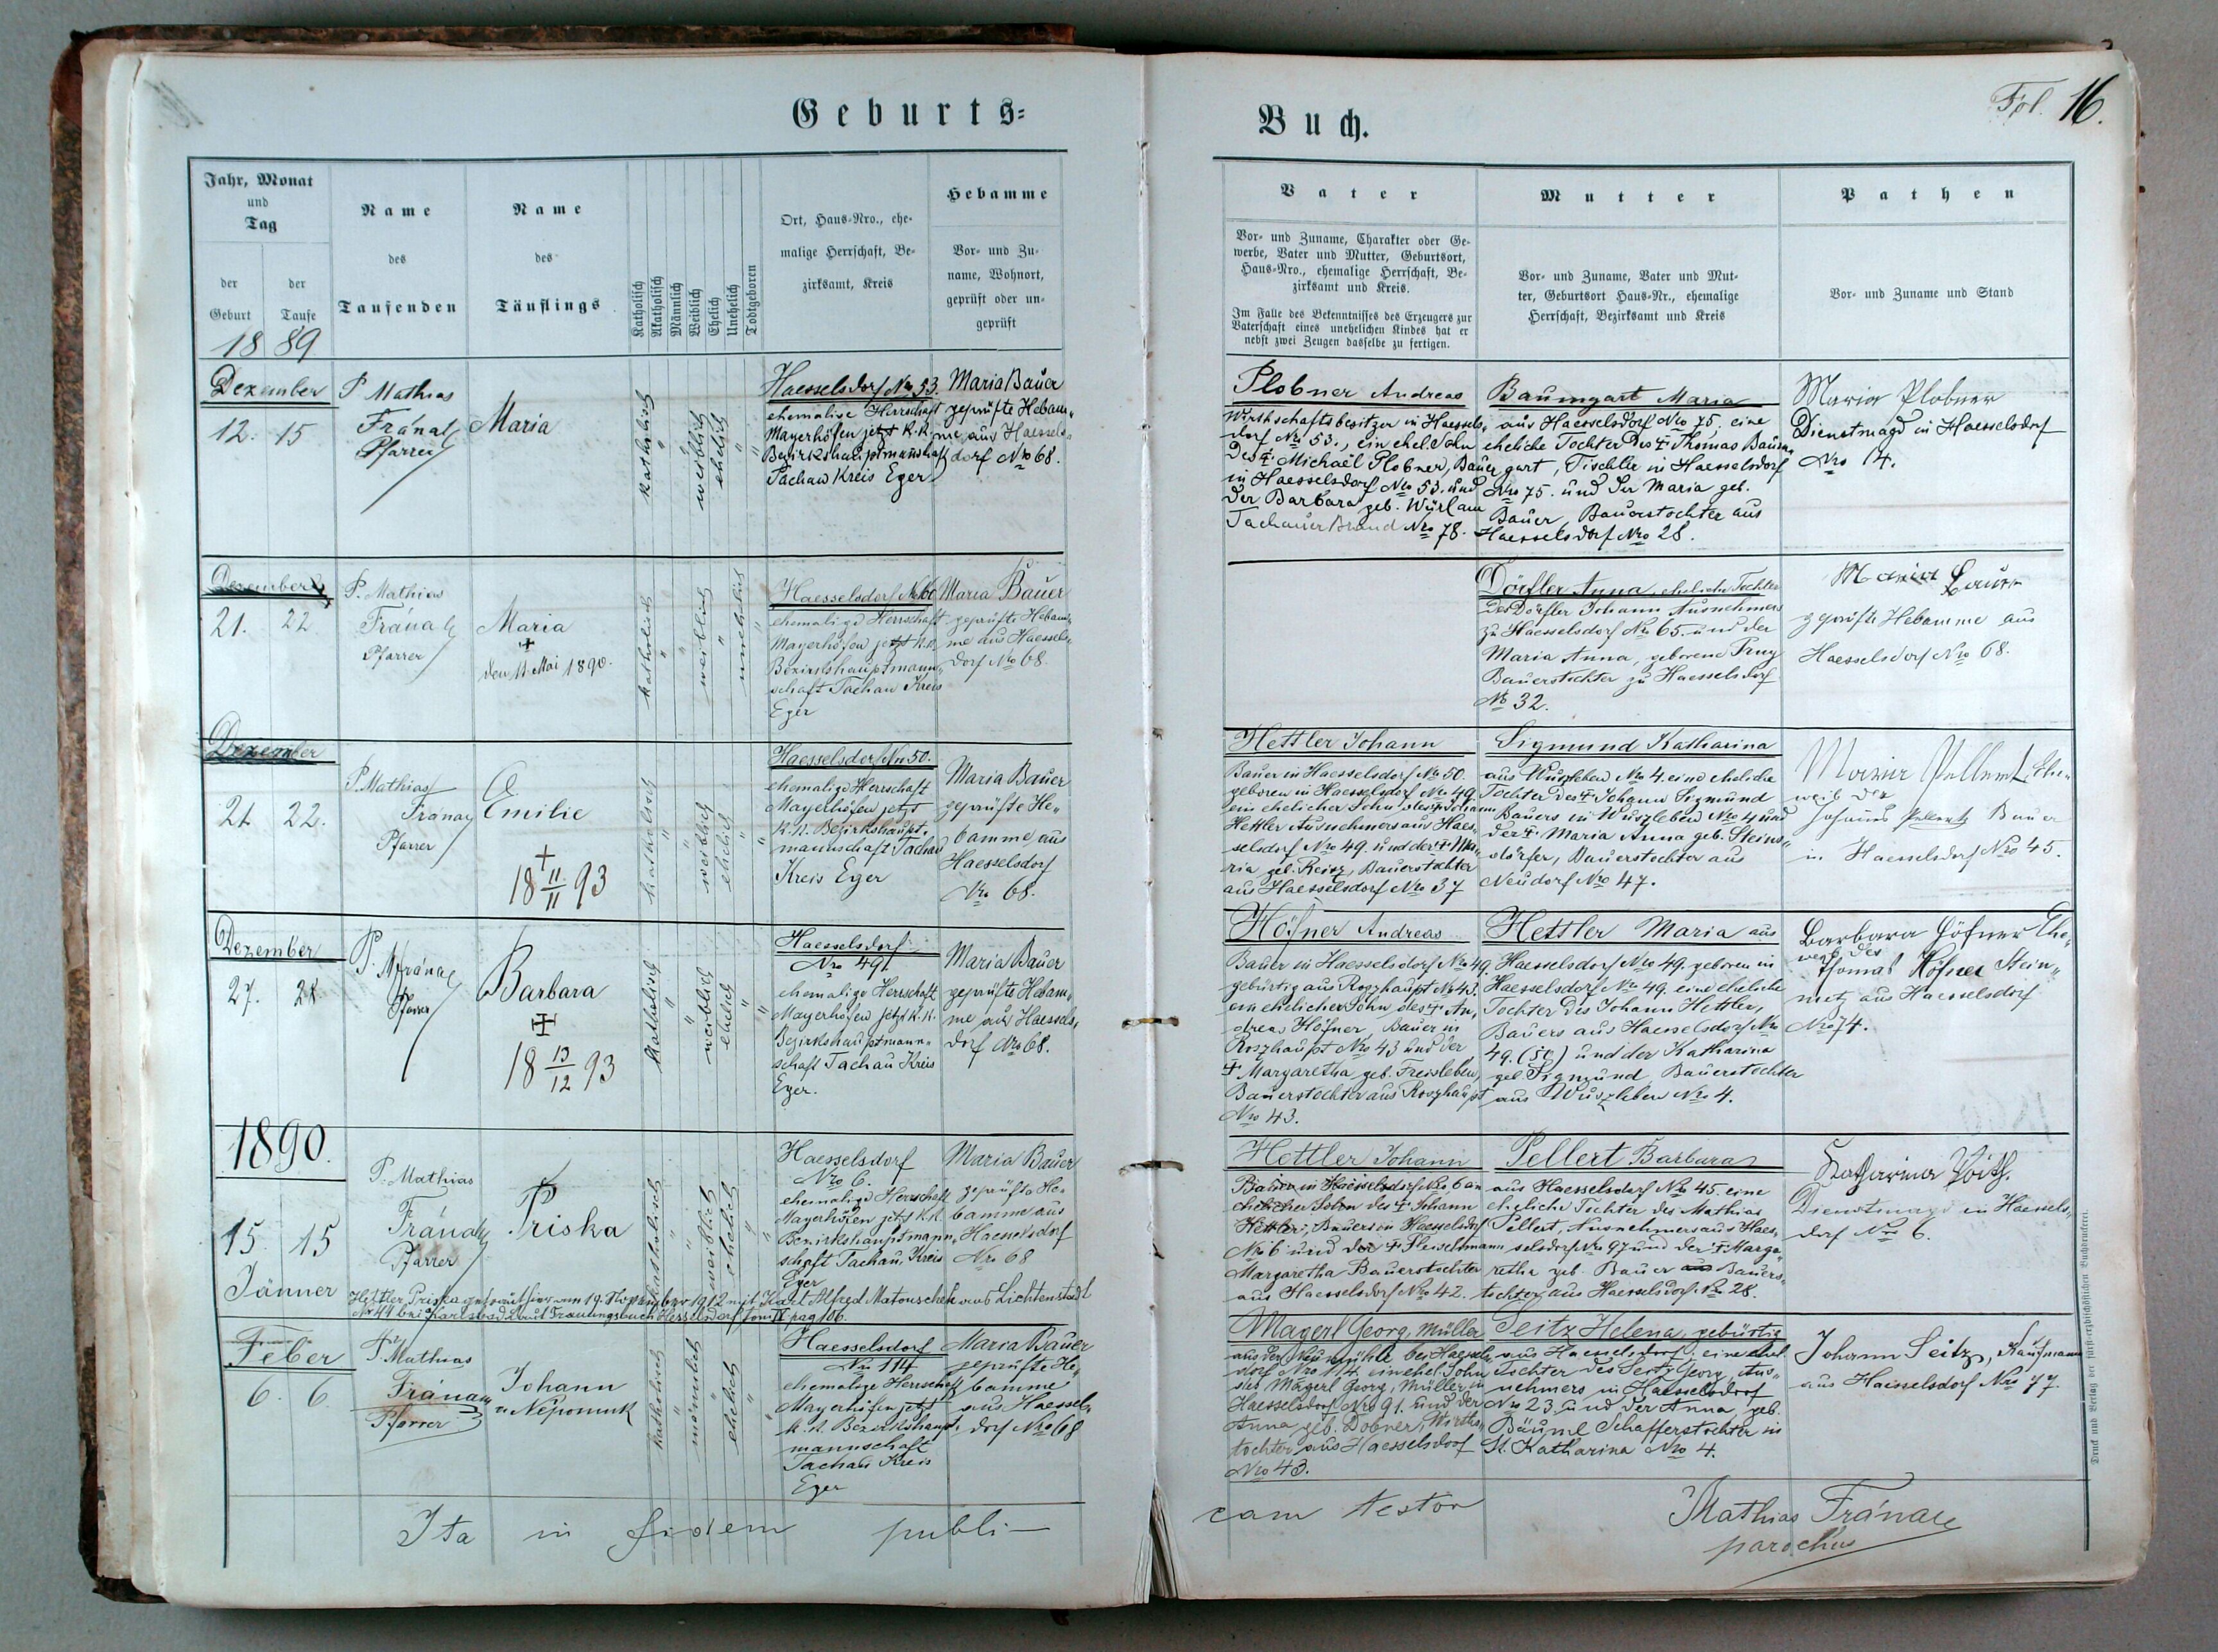 Geburts=
Buch.
Fol. 16.
Jahr, Monat
und
Tag
der
Geburt
der
Taufe
Name
des
Taufenden
Name
des
Täuflings
Katholisch
Akatholisch
Männlich
Weiblich
Ehelich
Unehelich
Todtgeboren
Ort, Haus-Nro., ehe-
malige Herrschaft, Be-
zirksamt, Kreis
Hebamme
Vor- und Zu-
name, Wohnort,
geprüft oder un-
geprüft
Vater
Vor- und Zuname, Charakter oder Ge-
werbe, Vater und Mutter, Geburtsort,
Haus-Nro., ehemalige Herrschaft, Be-
zirksamt und Kreis.
Im Falle des Bekenntnisses des Erzeugers zur
Vaterschaft eines unehelichen Kindes hat er
nebst zwei Zeugen dasselbe zu fertigen.
Mutter
Vor- und Zuname, Vater und Mut-
ter, Geburtsort Haus-Nr., ehemalige
Herrschaft, Bezirksamt und Kreis
Pathen
Vor- und Zuname und Stand
1889
Dezember
12. 15
P. Mathias
Fránal
Pfarrer
Maria
katholisch
weiblich
ehelich
Haesselsdorf Nro 53.
ehemalige Herrschaft
Mayerhöfen jetzt k.k.
Bezirkshauptmannschaft
Tachau Kreis Eger
Maria Bauer
geprüfte Hebam„
me aus Haessels„
dorf Nro 68.
Plobner Andreas
Wirthschaftsbesitzer in Haessels„
dorf Nro 53., ein ehel. Sohn
des † Michaël Plobner, Bauer
in Haesselsdorf Nro 53. und
der Barbara geb. Würl aus
Tachauer Brand Nro 78.
Baumgart Maria
aus Haesselsdorf Nro 75. eine
eheliche Tochter des † Thomas Baum„
gart, Tischler in Haesselsdorf
Nro 75. und der Maria geb.
Bauer, Bauerstochter aus
Haesselsdorf Nro 28.
Maria Plobner
Dienstmagd in Haesselsdorf
Nro 14.
Dezember
21. 22
P. Mathias
Fránal
Pfarrer
Maria
†
den 11. Mai 1890.
katholisch
weiblich
unehelich
Haesselsdorf Nro 60
ehemalige Herrschaft
Mayerhöfen jetzt k.k.
Bezirkshauptmann„
schaft Tachau Kreis
Eger
Maria Bauer
geprüfte Hebam„
me aus Haessels„
dorf Nro 68.
Dörfler Anna, eheliche Tochter
des Dörfler Johann Ausnehmers
zu Haesselsdorf Nro 65. und der
Maria Anna, geborene
Bauerstochter zu Haesselsdorf
No 32.
Maria Bauer
geprüfte Hebamme aus
Haesselsdorf Nro 68.
Dezember
21. 22.
P. Mathias
Fránal
Pfarrer
Emilie
†
18 11/11 93
katholisch
weiblich
ehelich
Haesselsdorf Nro 50.
ehemalige Herrschaft
Mayerhöfen jetzt
k.k. Bezirkshaupt„
mannschaft Tachau
Kreis Eger
Maria Bauer
geprüfte He„
bamme aus
Haesselsdorf
Nro 68.
Hettler Johann
Bauer in Haesselsdorf Nro 50.
geboren in Haesselsdorf Nro 49.
ein ehelicher Sohn des † Johann
Hettler Ausnehmers aus Haes„
selsdorf Nro 49. und der † Ma„
ria geb. Reisz, Bauerstochter
aus Haesselsdorf Nro 37
Sigmund Katharina
aus Wusleben Nro 4. eine eheliche
Tochter des † Johann Sigmund
Bauers in Wusleben Nro 4 und
der † Maria Anna geb. Steins„
dörfer, Bauerstochter aus
Neudorf Nro 47.
Maria Pellert, Ehe„
weib des
Johann Pellert Bauer
in Haesselsdorf Nro 45.
Dezember
27. 28.
P. M. Fránal
Pfarrer
Barbara
†
18 13/12 93
katholisch
weiblich
ehelich
Haesselsdorf
Nro 49.
ehemalige Herrschaft
Mayerhöfen jetzt k.k.
Bezirkshauptmann„
schaft Tachau Kreis
Eger.
Maria Bauer
geprüfte Hebam„
me aus Haessels„
dorf Nro 68.
Höfner Andreas
Bauer in Haesselsdorf Nro 49.
gebürtig aus Roszhaupt Nro 43.
ein ehelicher Sohn des † An„
dreas Höfner, Bauer in
Roszhaupt Nro 43 und der
† Margaretha geb. Freisleben,
Bauerstochter aus Roszhaupt
Nro 43.
Hettler Maria aus
Haesselsdorf Nro 49. geboren in
Haesselsdorf Nro 49. eine eheliche
Tochter des Johann Hettler,
Bauers aus Haesselsdorf Nro
49. (50) und der Katharina
geb. Sigmund Bauerstochter
aus Wusleben Nro 4.
Barbara Höfner Ehe„
weib des
Thomas Höfner Stein„
metz aus Haesselsdorf
Nro 74.
1890.
15 15
Jänner
P. Mathias
Fránal
Pfarrer
Priska
katholisch
weiblich
ehelich
Haesselsdorf
Nro 6.
ehemalige Herrschaft
Mayerhöfen jetzt k.k.
Bezirkshauptmann„
schaft Tachau, Kreis
Eger
Maria Bauer
geprüfte He„
bamme aus
Haesselsdorf
Nro 68
Hettler Priska getraut hier am 19. November 1912 mit Karl Alfred Matouschek aus Lichtenstadt
Nr 44 bei Karlsbad. Laut Trauungsbuch Hesselsdorf tom. II pag 106.
Hettler Johann
Bauer in Haesselsdorf Nro 6 ein
ehelicher Sohn des † Johann
Hettler, Bauers in Haesselsdorf
Nro 6 und der † Fleischmann
Margaretha Bauerstochter
aus Haesselsdorf Nro 42.
Pellert Barbara
aus Haesselsdorf Nro 45. eine
eheliche Tochter des Mathias
Pellert, Ausnehmers aus Haes„
selsdorf Nro 97 und der † Marga„
retha geb. Bauer aus Bauers„
tochter aus Haesselsdorf Nro 28.
Katharina Voith.
Dienstmagd in Haessels„
dorf Nro 6.
Feber
6. 6.
P. Mathias
Fránal
Pfarrer
Johann
v. Nepomuk
katholisch
männlich
ehelich
Haesselsdorf
Nro 114
ehemalige Herrschaft
Mayerhöfen jetzt
k.k. Bezirkshaupt„
mannschaft
Tachau Kreis
Eger
Maria Bauer
geprüfte He„
bamme
aus Haessels„
dorf Nro 68
Magerl Georg, Müller
aus der Neumühle bei Haessels„
dorf Nro 114. ein ehel. Sohn
des Magerl Georg, Müller in
Haesselsdorf Nro 91. und der
Anna geb. Dobner, Wirths„
tochter aus Haesselsdorf
Nro 43.
Seitz Helena, gebürtig
aus Haesselsdorf, eine ehel.
Tochter des Seitz Georg, Aus„
nehmers in Haesselsdorf
Nro 23 und der Anna geb.
Bäuml Schafferstochter in
St. Katharina Nro 4.
Johann Seitz, Kaufmann
aus Haesselsdorf Nro 77.
Ita in fidem publi-
cam testor
Mathias Fránal
parochus
Druck und Verlag der fürst-erzbischöflichen Buchdruckerei.